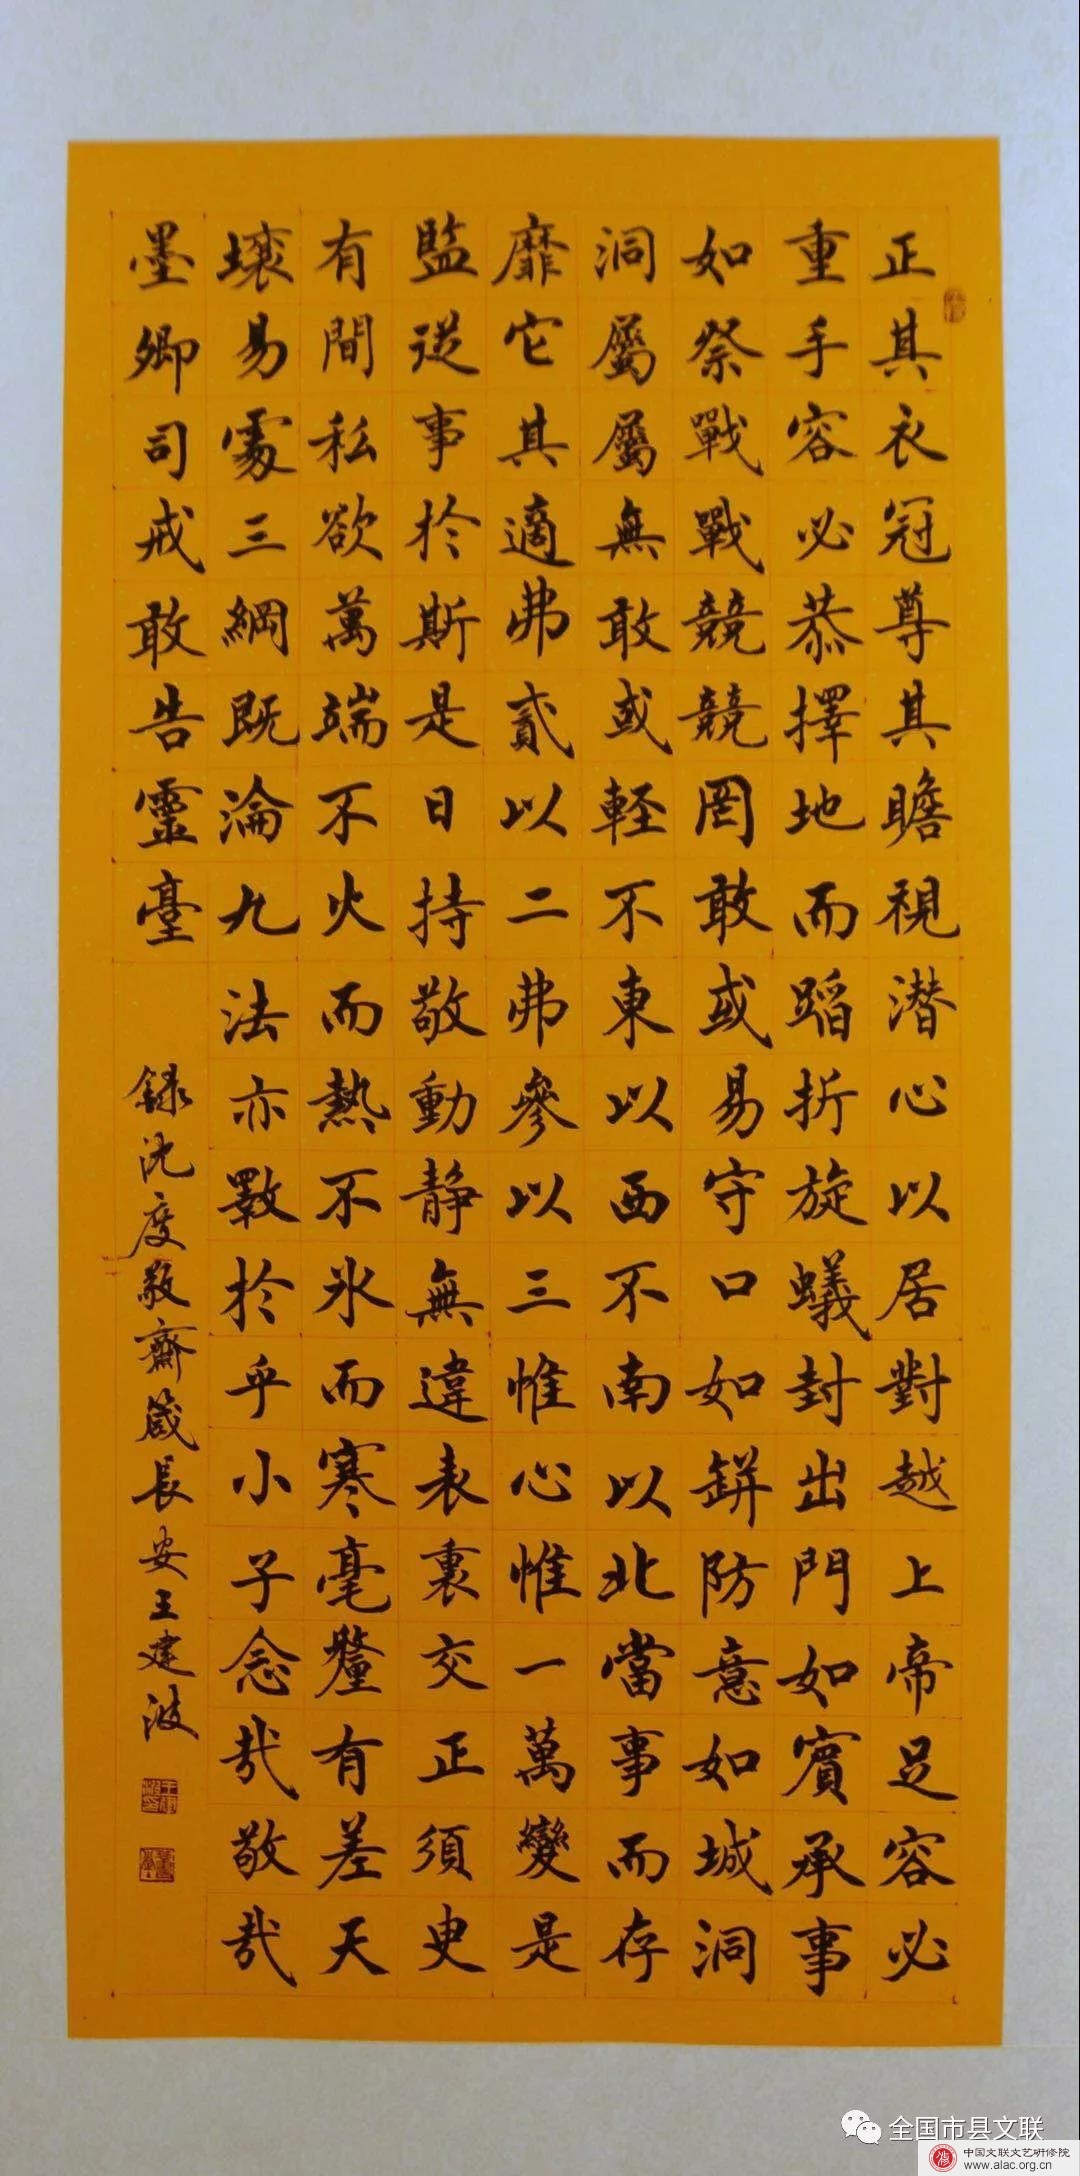 正其衣冠尊其瞻視潜心以居對越上帝足容必
重手容必恭擇地而蹈折旋蟻封出門如賓承事
如祭戰戰競競罔敢或易守口如缾防意如城洞
洞屬屬無敢或輕不東以西不南以北當事而存
靡它其適弗貳以二弗參以三惟心惟一萬變是
監從事於斯是日持敬動静無違表裏交正須臾
有間私欲萬端不火而熱不氷而寒毫釐有差天
壤易處三綱既淪九法亦斁於乎小子念哉敬哉
墨卿司戒敢告靈臺
録沈度敬齋箴長安王建波
全国市县文联
中国文联文艺研修院
www.alac.org.cn